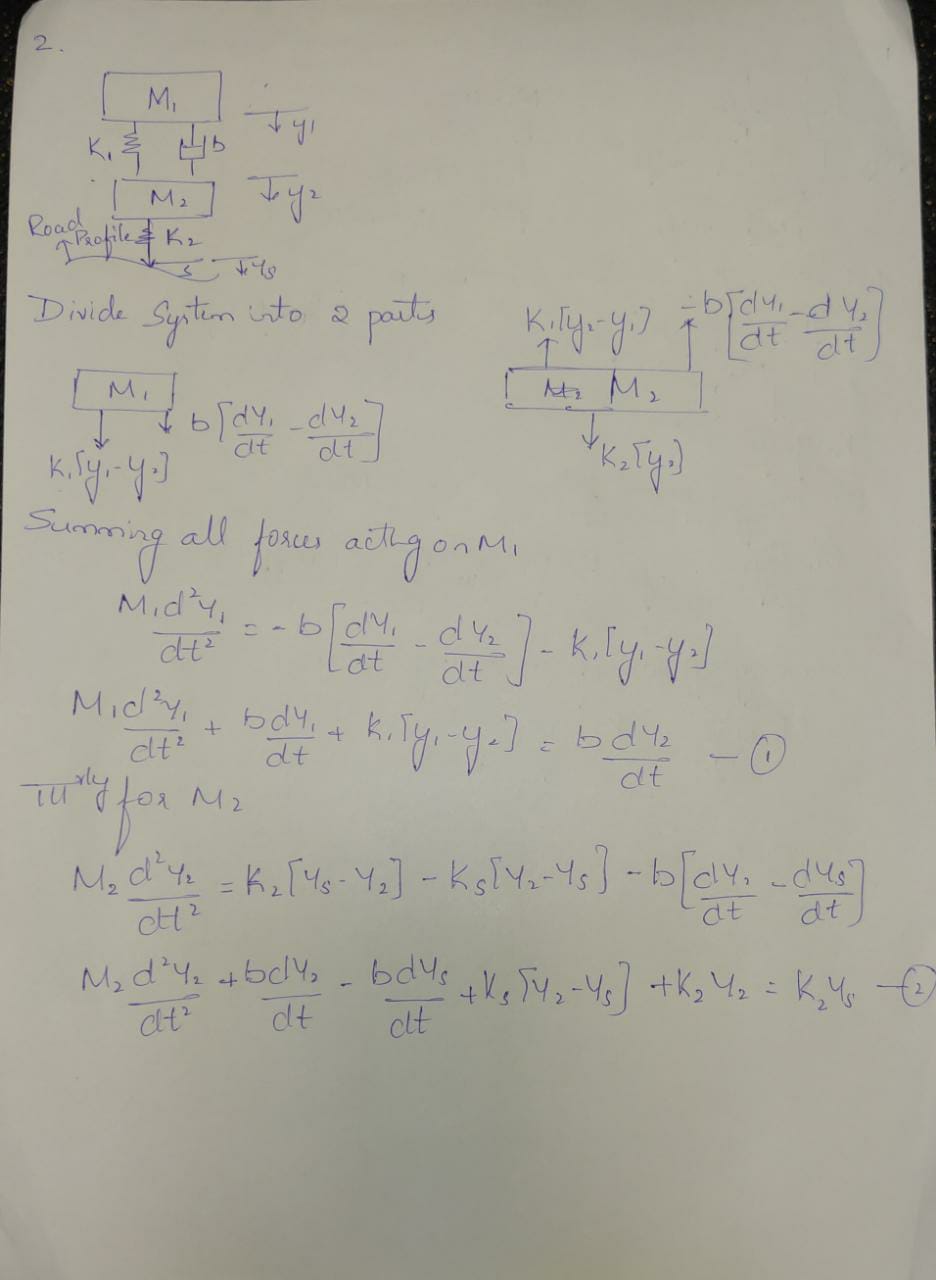 2.
M₁
↓ y₁
K₁ b
M₂
↓ y₂
Road Profile K₂
s ↓ Ys
Divide System into 2 parts
K₁[y₂-y₁] -b[dY₁/dt - dY₂/dt]
M₁ M₂
b[dY₁/dt - dY₂/dt]
K₁[y₁-y₂] K₂[y₂]
Summing all forces acting on M₁
M₁d²Y₁/dt² = -b[dY₁/dt - dY₂/dt] - K₁[y₁-y₂]
M₁d²y₁/dt² + bdY₁/dt + K₁[y₁-y₂] = bdY₂/dt - ①
IIIrly for M₂
M₂d²Y₂/dt² = K₂[Ys-Y₂] - Ks[Y₂-Ys] - b[dY₂/dt - dYs/dt]
M₂d²Y₂/dt² + bdY₂/dt - bdYs/dt + Ks[Y₂-Ys] + K₂Y₂ = K₂Ys - ②